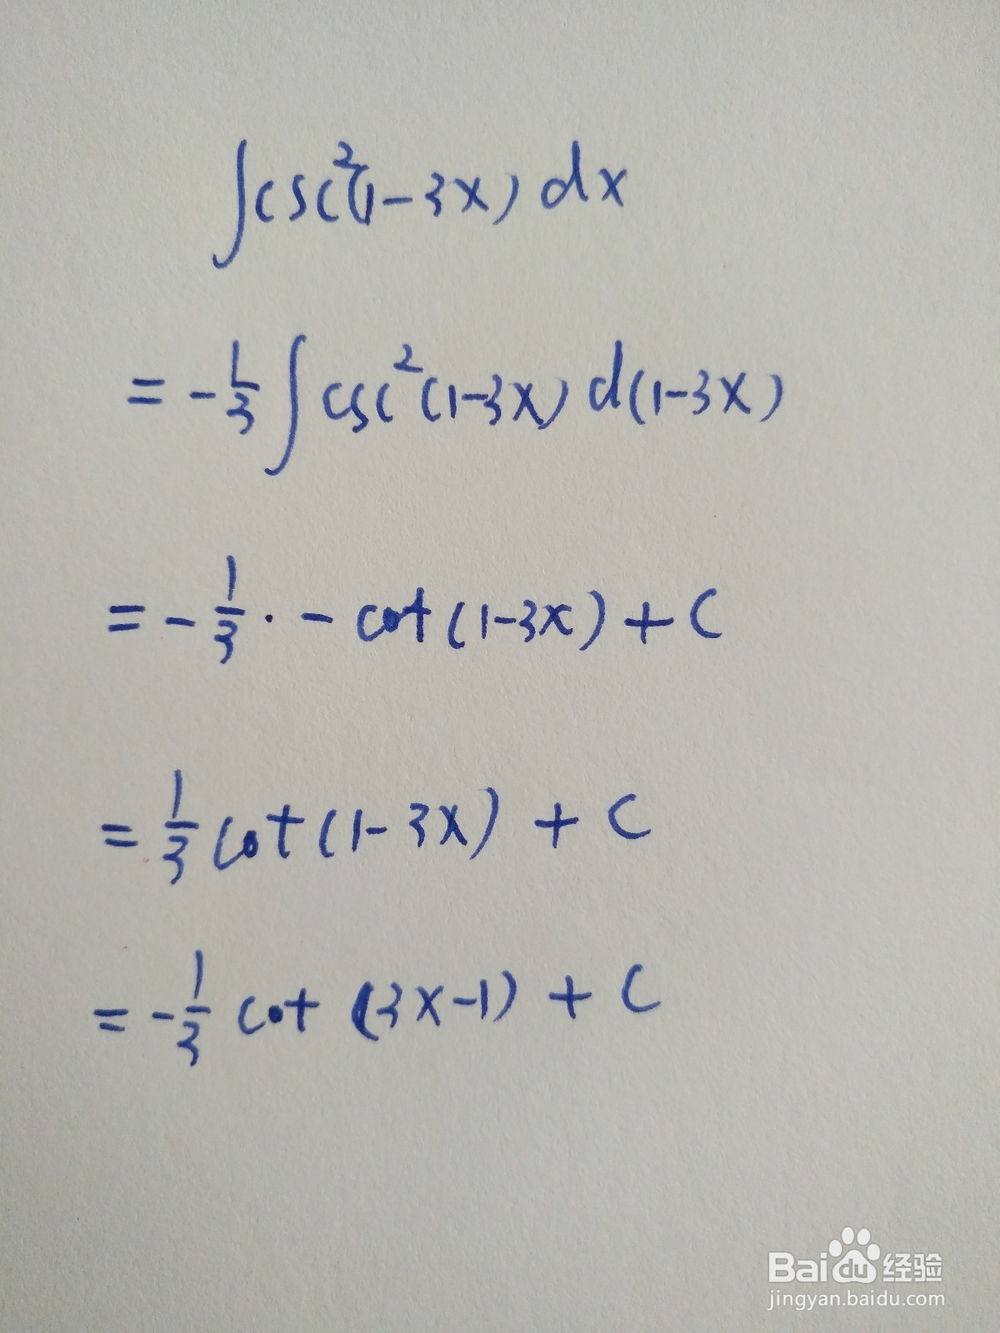 ∫csc²(1-3x) dx
= -1/3 ∫ csc²(1-3x) d(1-3x)
= -1/3 · - cot(1-3x) + C
= 1/3 cot(1-3x) + C
= -1/3 cot (3x-1) + C
Baidu经验
jingyan.baidu.com